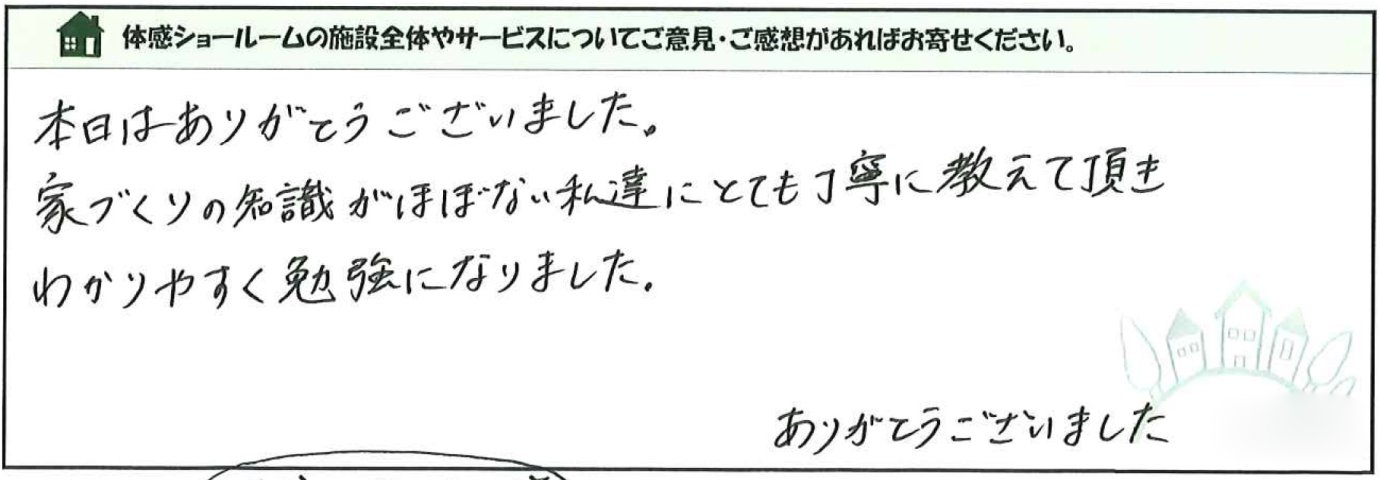 体感ショールームの施設全体やサービスについてご意見・ご感想があればお寄せください。
本日はありがとうございました。
家づくりの知識がほぼない私達にとても丁寧に教えて頂き
わかりやすく勉強になりました。
ありがとうございました